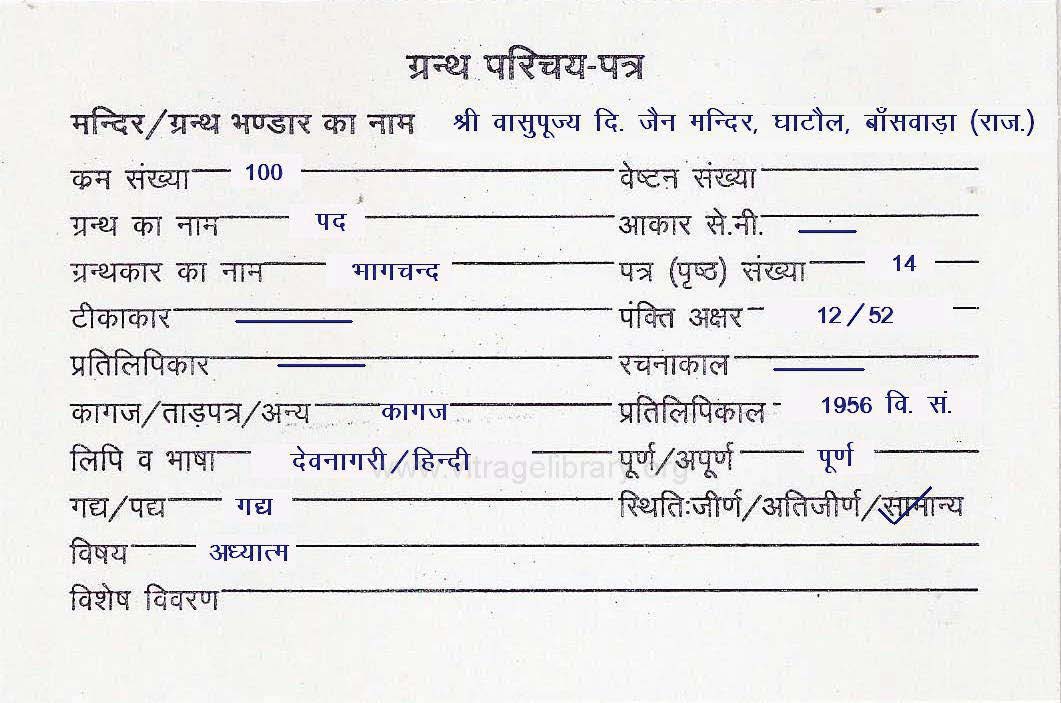 ग्रन्थ परिचय-पत्र
मन्दिर/ग्रन्थ भण्डार का नाम श्री वासुपूज्य दि. जैन मन्दिर, घाटौल, बाँसवाड़ा (राज.)
कम संख्या 100 वेष्टन संख्या
ग्रन्थ का नाम पद आकार से.मी.
ग्रन्थकार का नाम भागचन्द पत्र (पृष्ठ) संख्या 14
टीकाकार पंक्ति अक्षर 12/52
प्रतिलिपिकार रचनाकाल
कागज/ताड़पत्र/अन्य कागज प्रतिलिपिकाल 1956 वि. सं.
लिपि व भाषा देवनागरी/हिन्दी पूर्ण/अपूर्ण पूर्ण
www.vitragelibrary.org
गद्य/पद्य गद्य स्थितिःजीर्ण/अतिजीर्ण/सामान्य
विषय अध्यात्म
विशेष विवरण